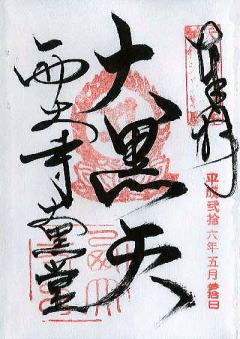 奉拝
平成弐拾六年五月拾日
大黒天
西大寺大黒堂